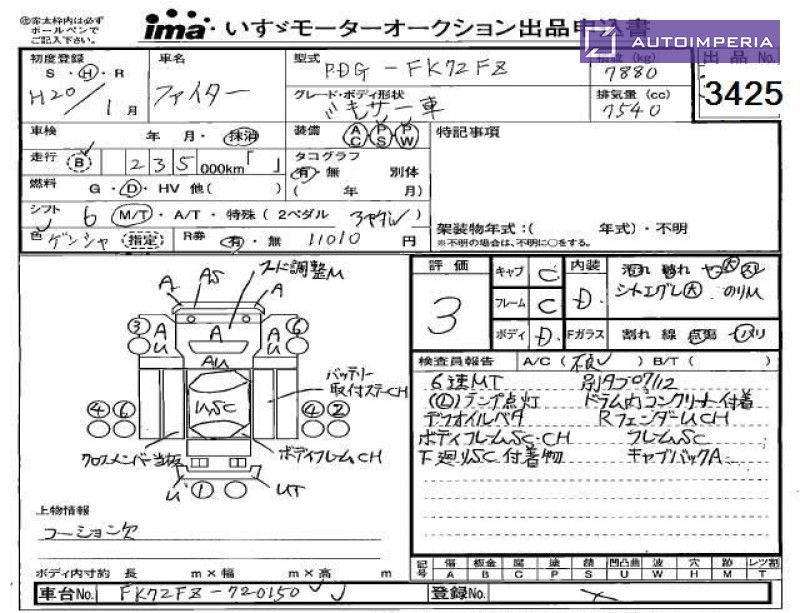 ㊟赤太枠内は必ず
ボールペンで
ご記入下さい。
ima いすゞモーターオークション出品申込書
AUTOIMPERIA
初度登録
S・H・R
H20/1月
車名
ファイター
型式
PDG-FK72FZ
(kg)
7880
出品No.
3425
グレード・ボディ形状
ミキサー車
排気量(cc)
7540
車検 年 月・抹消
装備 AC PS PW
特記事項
走行 B 235000km「 」
タコグラフ
有・無 別体
( 年 月)
燃料 G・D・HV 他( )
シフト 6 M/T・A/T・特殊(2ペダル 3ペダル)
架装物年式:( 年式)・不明
※不明の場合は、不明に○をする。
色 ゲンシャ 指定 R券 有・無 11010円
評価
3
キャブ C
フレーム C
ボディ D
内装
D
汚れ 破れ ヤケ大 スレ
シートエグレ大 のりU
Fガラス 割れ 線 点傷 ハバリ
検査員報告 A/C(不良)B/T( )
6速MT
ランプ点灯
ドラム内コンクリート付着
RフェンダーUCH
ボディフレームSC・CH
フレームSC
下廻りSC 付着物
キャブバックA
A AS A
ステ調整M
3 A A A 6
U U
AU
バッテリー
取付ステーCH
USC
4 6 4 2
クロスメンバー当板
ボディフレームCH
U 1 UT
上物情報
コーション欠
ボディ内寸約 長 m×幅 m×高 m
記号 傷A 板金B 腐C 塗P 錆S 凹凸曲U 波W 穴H 跡M レンズ割T
車台No. FK72FZ-720150
登録No.